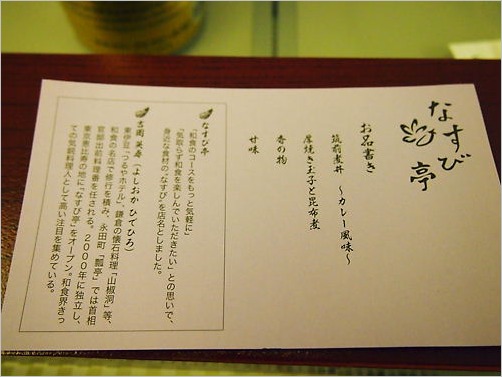 なすび亭
お品書き
筑前煮丼 ～カレー風味～
厚焼き玉子と昆布煮
香の物
甘味
なすび亭
「和食のコースをもっと気軽に」
「気取らず和食を楽しんでいただきたい」との思いで、
身近な食材の「なすび」を店名としました。
吉岡 英尋（よしおか ひでひろ）
東伊豆「つるやホテル」、鎌倉の懐石料理「山椒洞」等、
和食の名店で修行を積み、永田町「瓢亭」では首相
官邸出前料理番を任される。２０００年に独立し、
東京恵比寿の地に「なすび亭」をオープン。和食界きっ
ての気鋭料理人として高い注目を集めている。